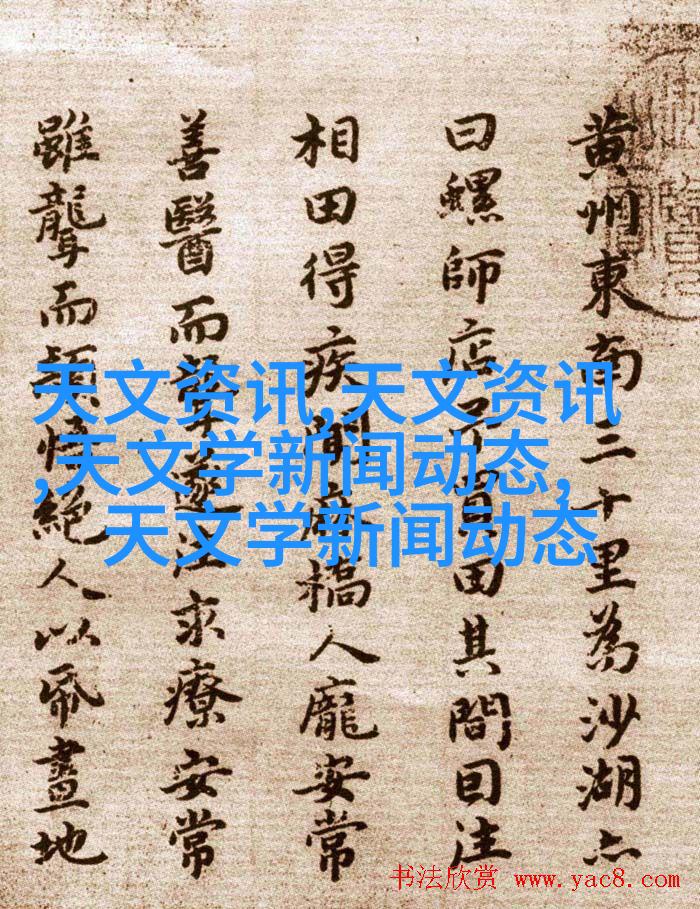 黄州東南三十里為沙湖亦
曰螺師店予買田其間因往
相田得疾聞麻橋人龐安常
善醫而聾遂往求療安常
雖聾而穎悟絕人以紙畫地
天文资讯,天文资讯
,天文学新闻动态,
天文学新闻动态
书法欣赏 www.yac8.com